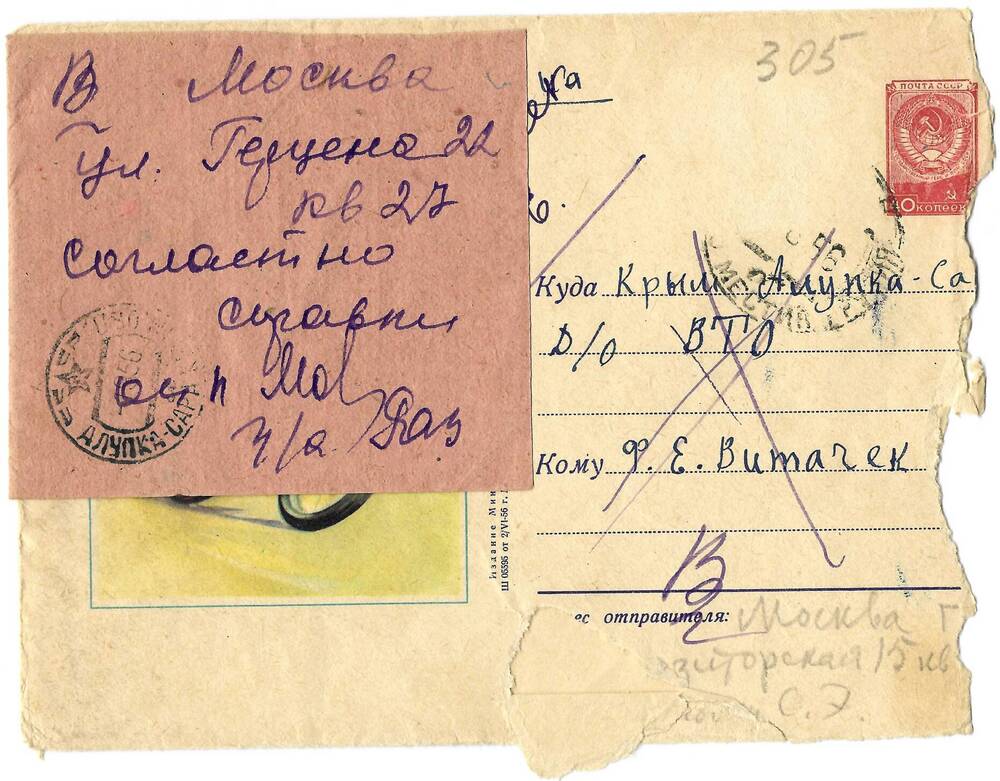 В Москва
ул. Герцена 22
кв 27
согластно
справки
АЛУПКА-САРА
305
ПОЧТА СССР
40 КОПЕЕК
Куда Крым Алупка-Са
Д/о ВТО
Кому Ф. Е. Витачек
В
ес отправителя:
Москва Г
зиторская 15 кв
С. Э.
Издание Мин
Ш 05595 от 2/VI-56 г.